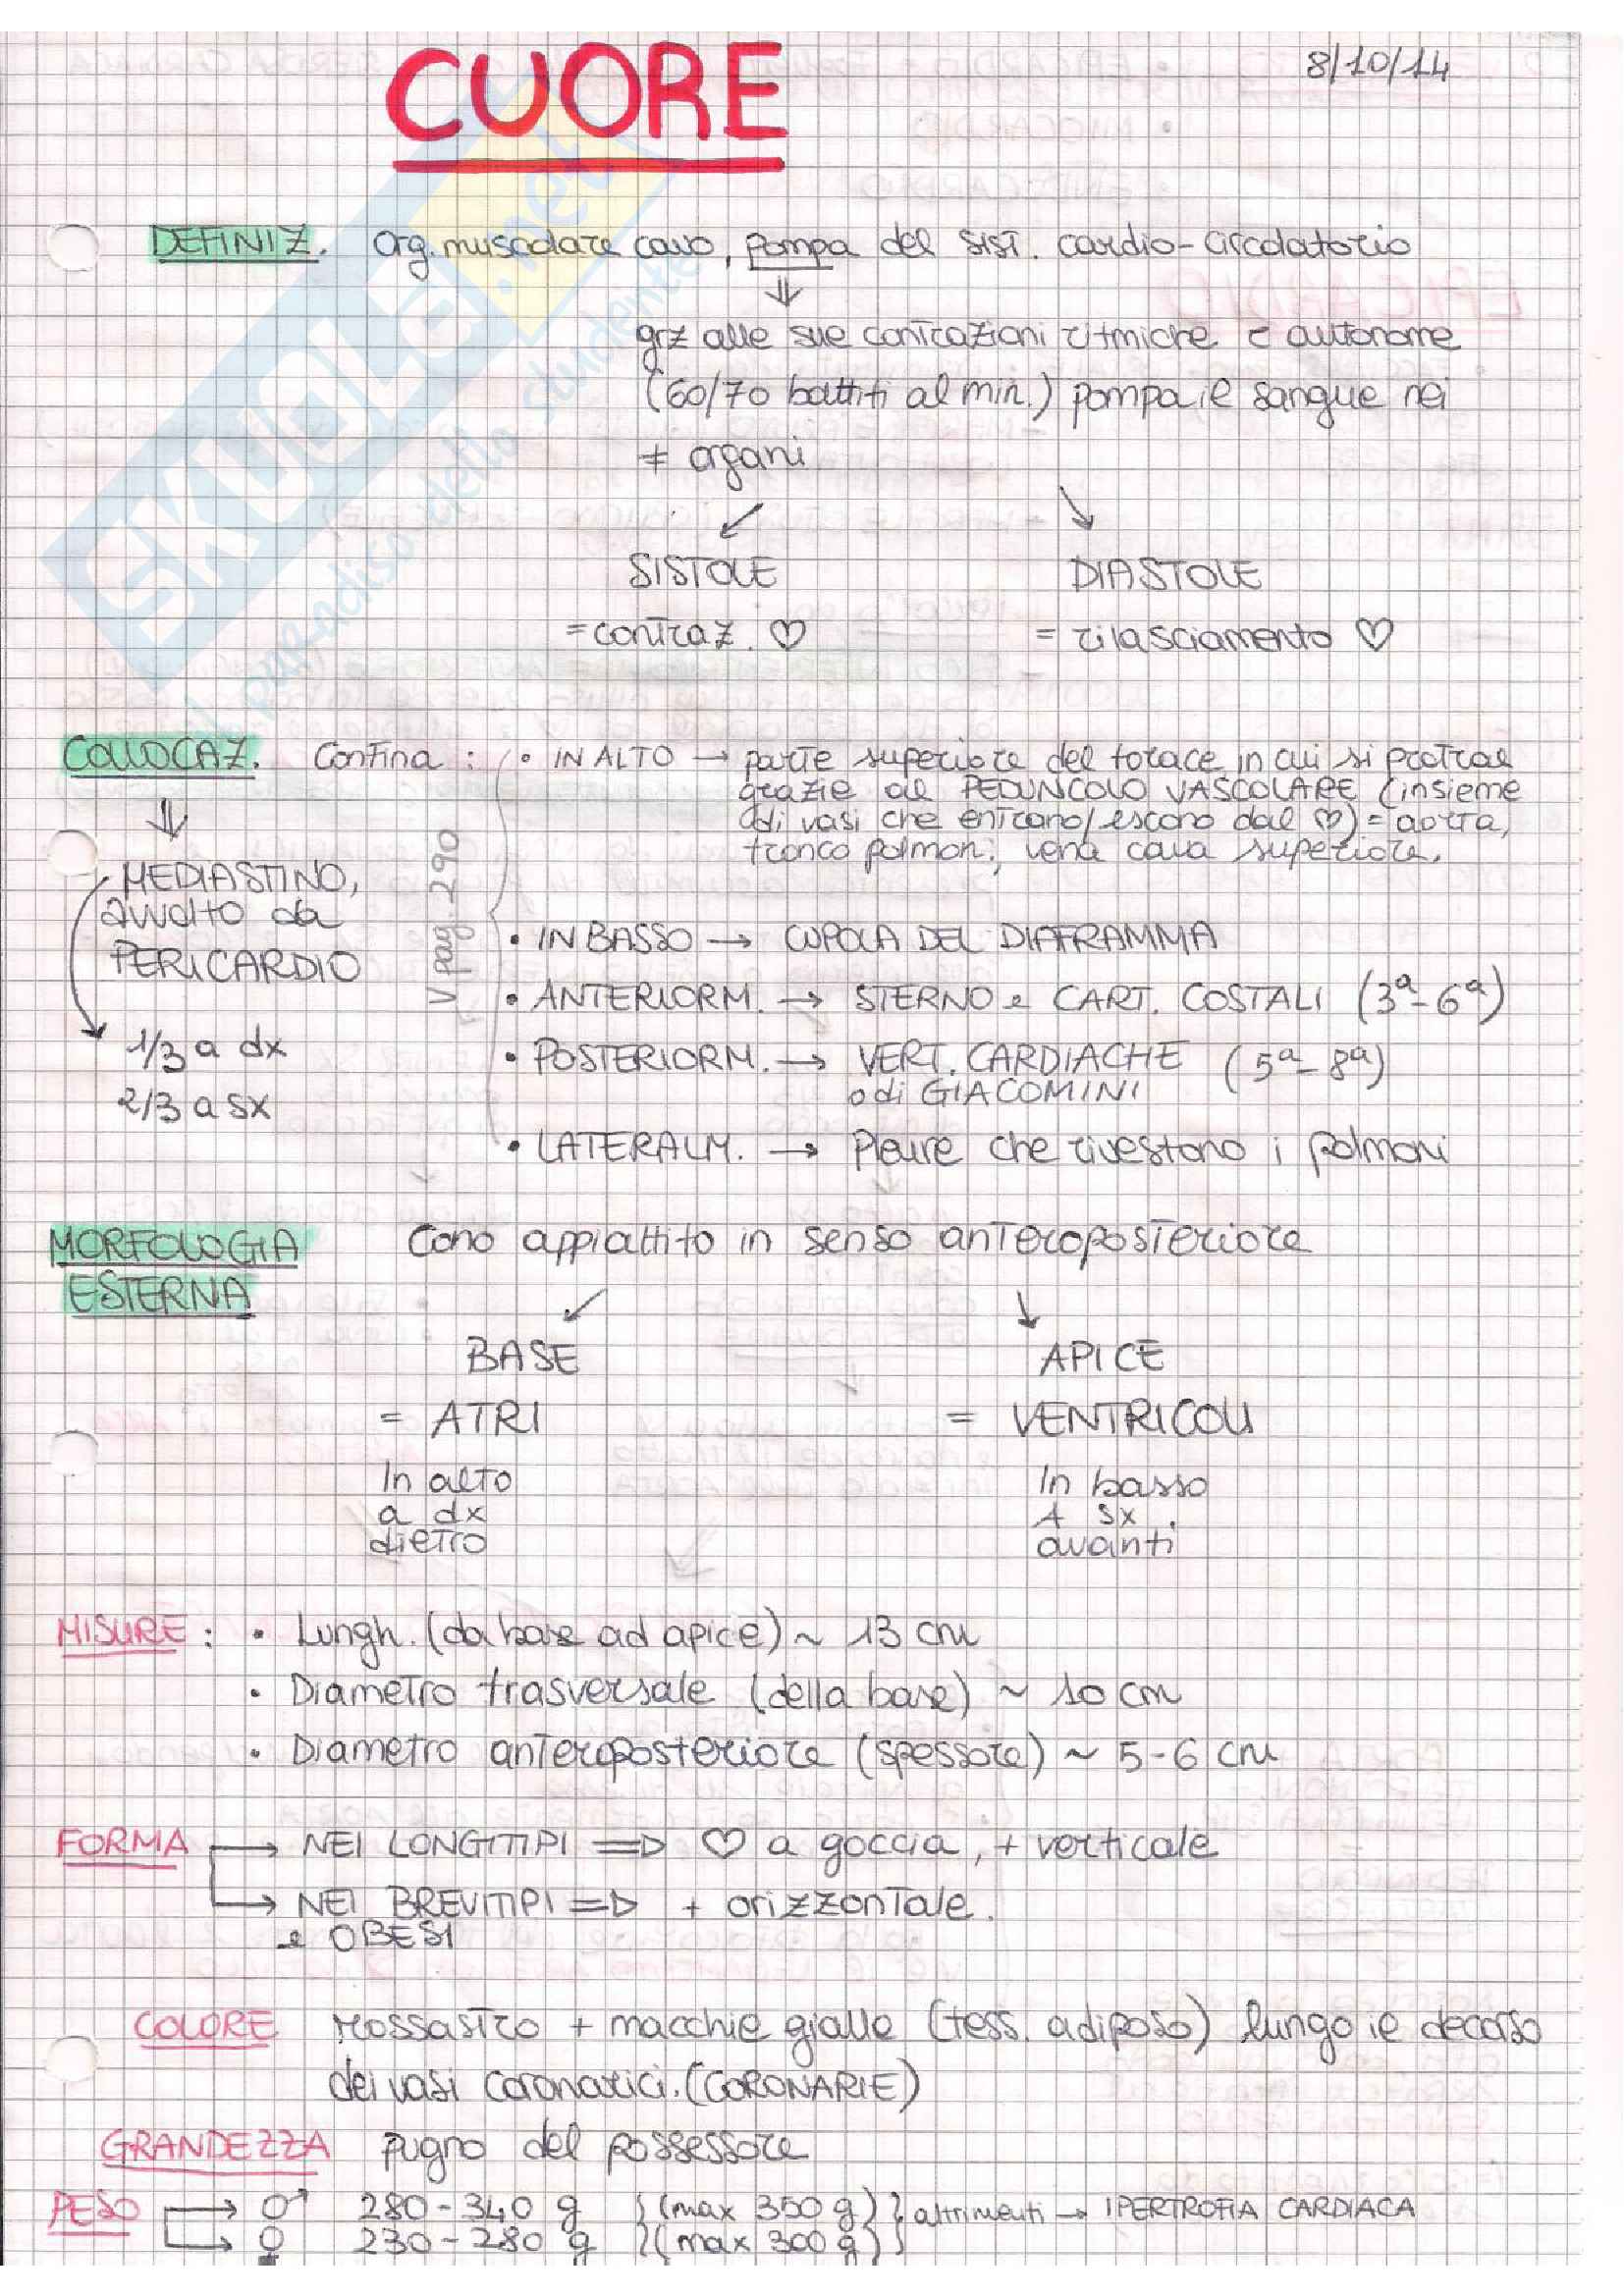 8/10/14
CUORE
DEFINIZ. Org. muscolare cavo, pompa del sist. cardio-circolatorio
⇓
grz alle sue contrazioni ritmiche e autonome
(60/70 battiti al min.) pompa il sangue nei
≠ organi
↙ ↘
SISTOLE DIASTOLE
= contraz. ♡ = rilasciamento ♡
COLLOCAZ. Confina :
⇓
MEDIASTINO,
avvolto da
PERICARDIO
1/3 a dx
2/3 a sx
V pag. 290
• IN ALTO → parte superiore del torace in cui si protrae
grazie al PEDUNCOLO VASCOLARE (insieme
di vasi che entrano/escono dal ♡) = aorta,
tronco polmon., vena cava superiore.
• IN BASSO → CUPOLA DEL DIAFRAMMA
• ANTERIORM. → STERNO e CART. COSTALI (3ª-6ª)
• POSTERIORM. → VERT. CARDIACHE (5ª-8ª)
o di GIACOMINI
• LATERALM. → Pleure che rivestono i polmoni
MORFOLOGIA Cono appiattito in senso anteroposteriore
ESTERNA
↙ ↓
BASE APICE
= ATRI = VENTRICOLI
In alto In basso
a dx A sx
dietro avanti
MISURE : • Lungh. (da base ad apice) ~ 13 cm
• Diametro trasversale (della base) ~ 10 cm
• Diametro anteroposteriore (spessore) ~ 5-6 cm
FORMA → NEI LONGITIPI ⇒ ♡ a goccia, + verticale
→ NEI BREVITIPI ⇒ + orizzontale.
e OBESI
COLORE rossastro + macchie gialle (tess. adiposo) lungo il decorso
dei vasi coronarici. (CORONARIE)
GRANDEZZA pugno del possessore
PESO → ♂ 280-340 g } (max 350 g) } altrimenti → IPERTROFIA CARDIACA
→ ♀ 230-280 g } (max 300 g) }
SKUOLA.net
il paradiso dello studente